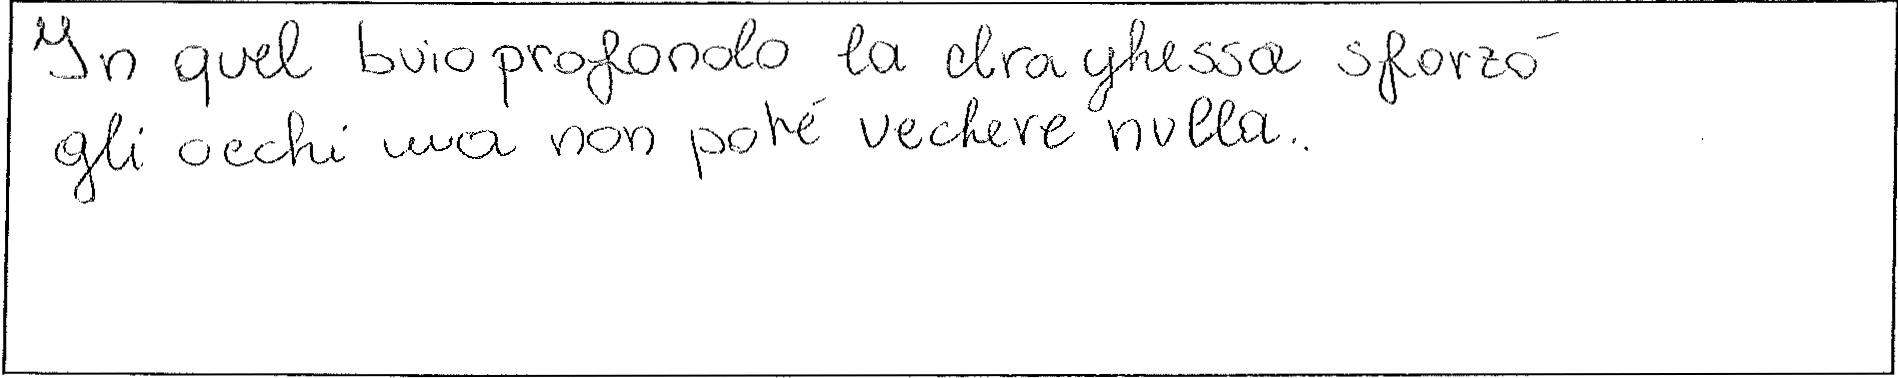 In quel buio profondo la draghessa sforzó
gli occhi ma non poté vedere nulla..